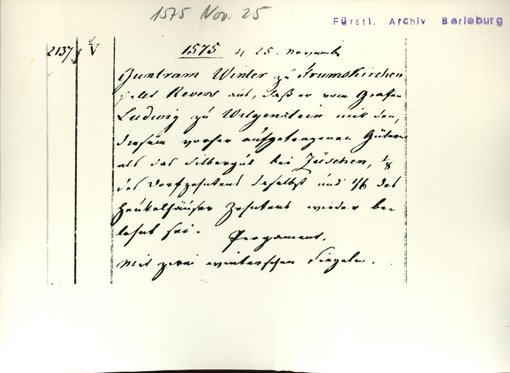 1575 Nov. 25
Fürstl. Archiv Berleburg
2137 1/V
1575 25. Novemb
Guntram Winter zu Frumskirchen
stellt Revers aus, daß er vom Grafen
Ludwig zu Witgenstein mit den,
diesem vorher aufgetragenen Gütern
als das Silbergut bei Züschen, 1/8
des Dorfzehntens daselbst und 1/6 des
Henkelhäuser Zehntens wieder be-
lehnt sei. Pergament.
Mit zwei winterschen Siegeln.